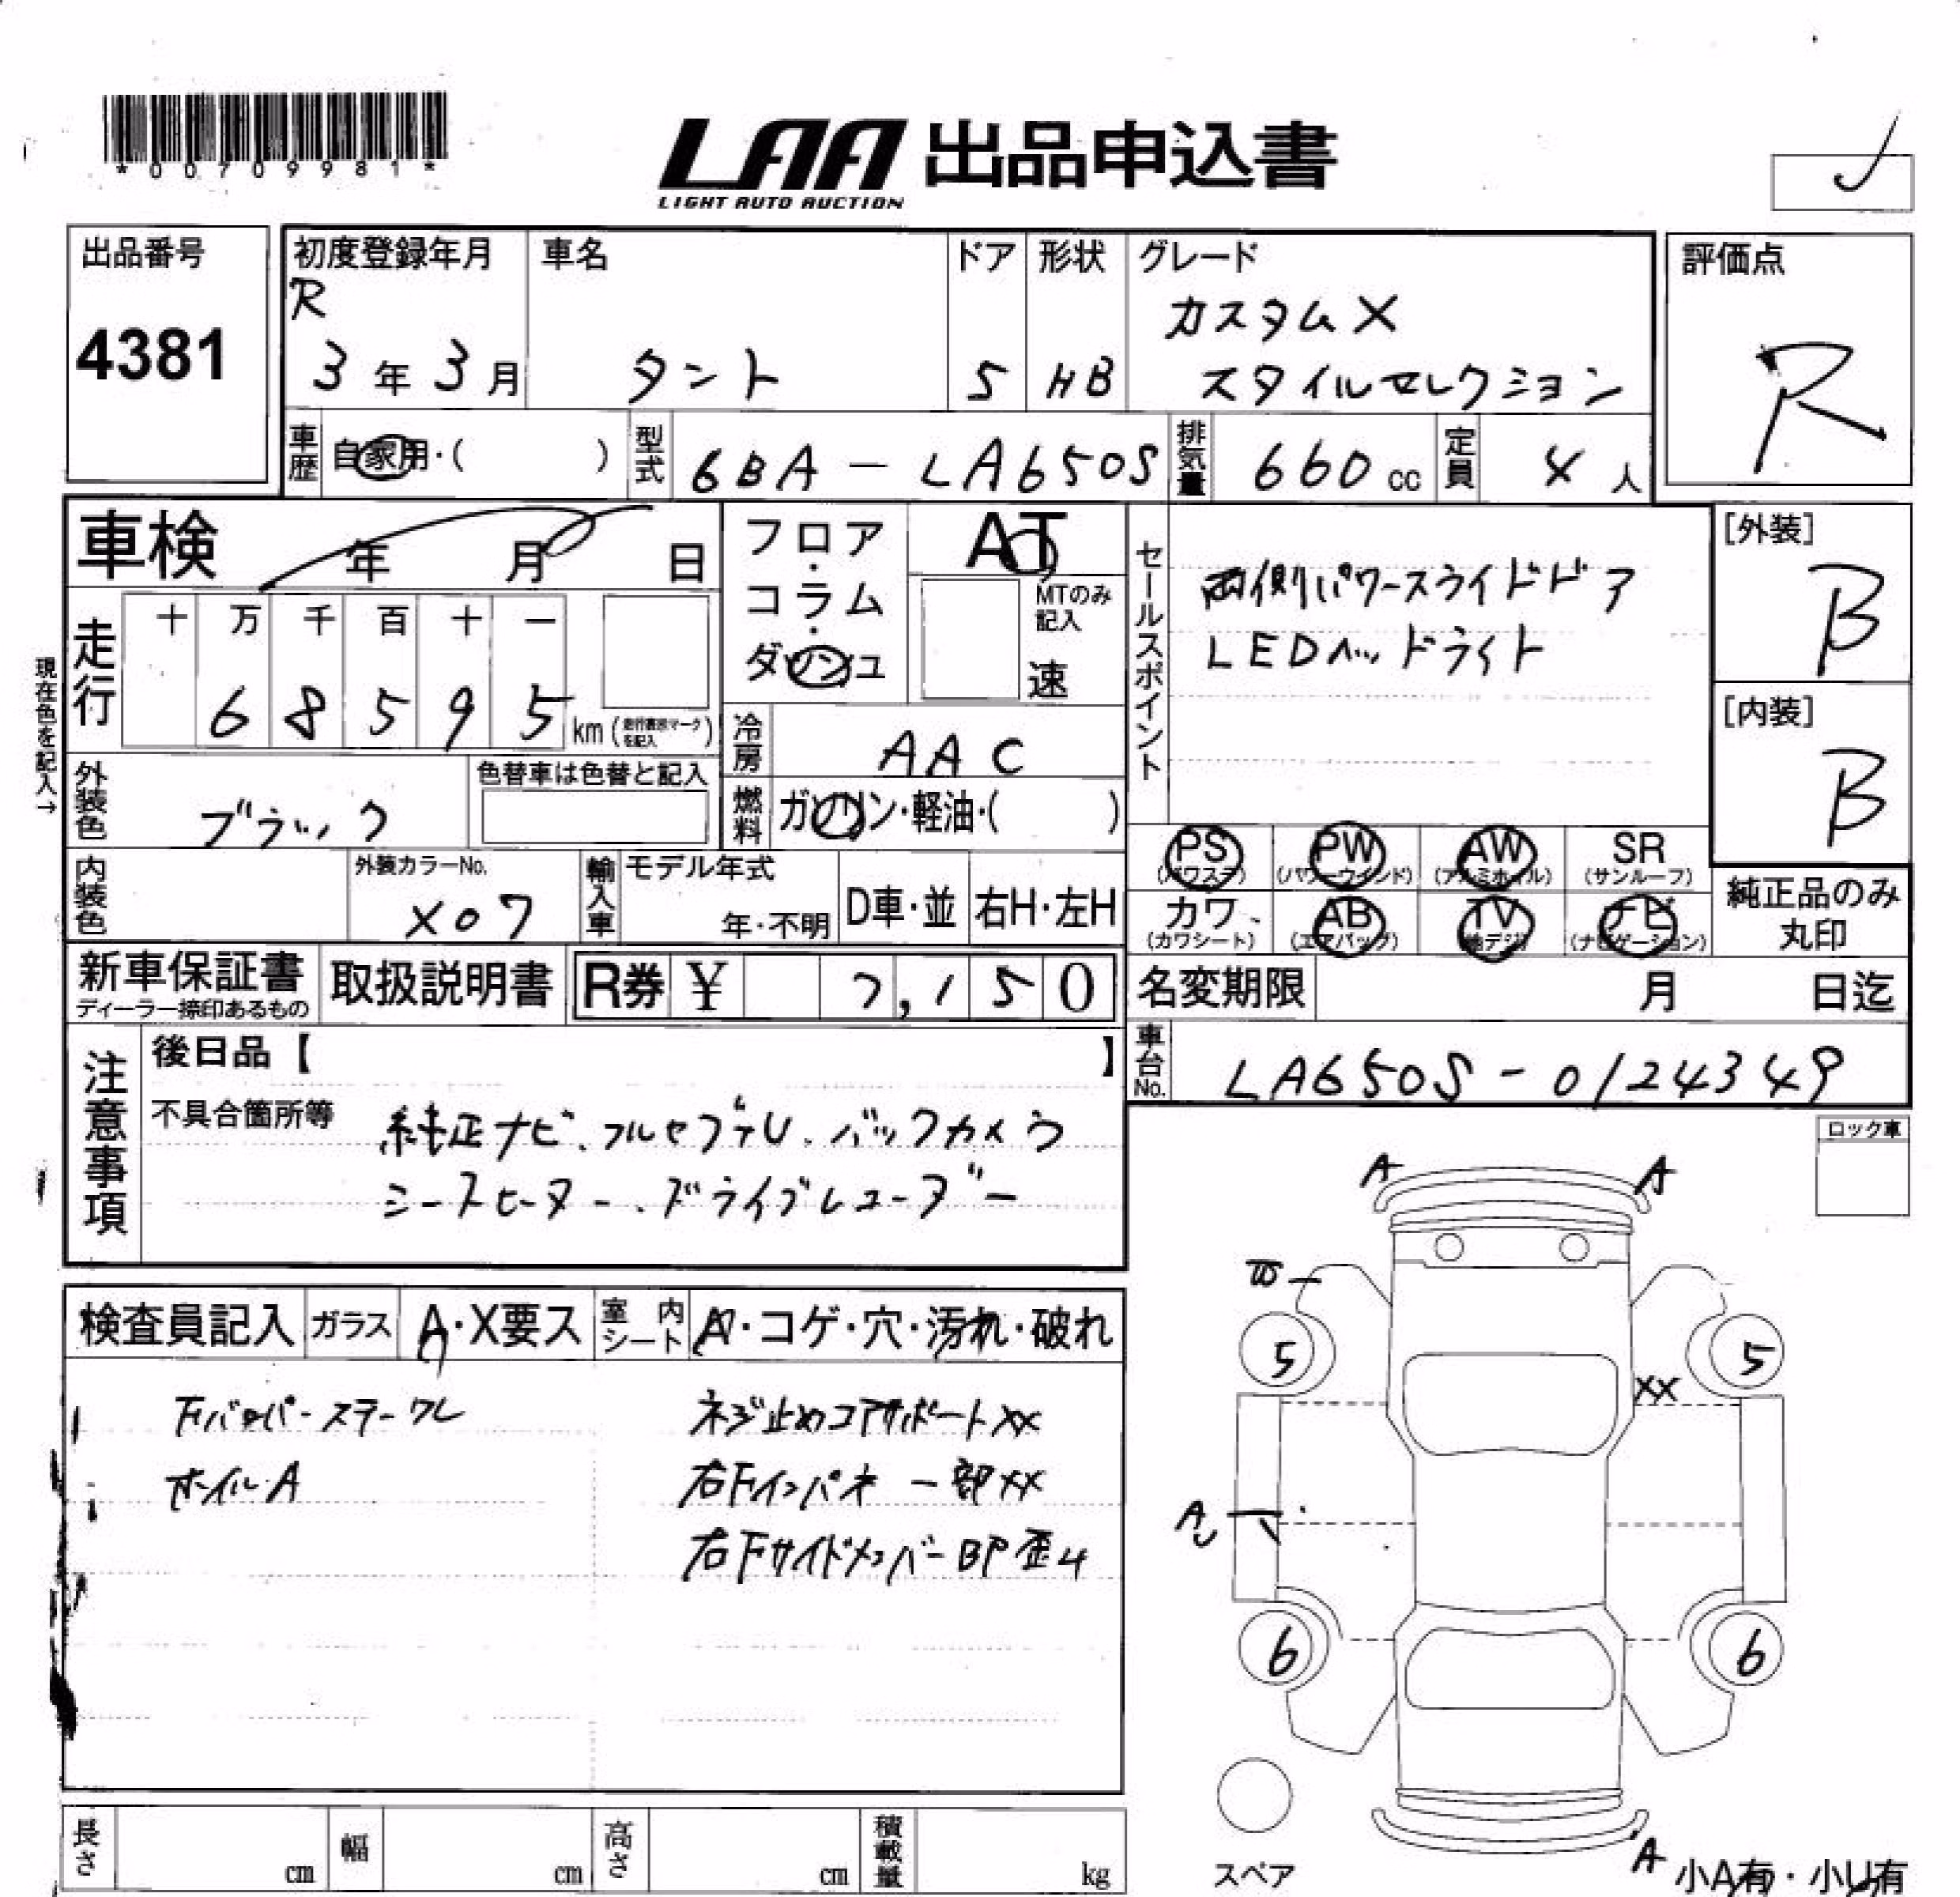 *00709981*
LAA 出品申込書
LIGHT AUTO AUCTION
出品番号
4381
初度登録年月
R
3年3月
車名
タント
ドア
5
形状
HB
グレード
カスタムX
スタイルセレクション
評価点
R
車歴 自家用・( )
型式 6BA-LA650S
排気量 660cc
定員 4人
車検 年 月 日
フロア・コラム・ダッシュ
AT
MTのみ記入
速
セールスポイント
両側パワースライドドア
LEDヘッドライト
[外装]
B
[内装]
B
現在色を記入→
走行
十 万 千 百 十 一
6 8 5 9 5 km (走行表示マークを記入)
冷房 AAC
外装色 ブラック
色替車は色替と記入
燃料 ガソリン・軽油・( )
PS (パワステ)
PW (パワーウインド)
AW (アルミホイル)
SR (サンルーフ)
カワ (カワシート)
AB (エアバッグ)
TV (地デジ)
ナビ (ナビゲーション)
純正品のみ丸印
内装色
外装カラーNo.
X07
輸入車
モデル年式
年・不明
D車・並
右H・左H
新車保証書
ディーラー捺印あるもの
取扱説明書
R券 ¥ 7,150
名変期限 月 日迄
車台No. LA650S-0124349
注意事項
後日品【 】
不具合箇所等
純正ナビ、フルセグテレビ、バックカメラ
シートヒーター、ドライブレコーダー
ロック車
検査員記入
ガラス A・X要ス
室内シート A・コゲ・穴・汚れ・破れ
ホイルA
ネジ止めコアサポートXX
右Fインパネ一部XX
右FサイドメンバーBP歪4
A A
W
5 5
XX
A
U
6 6
スペア
A
小A有・小U有
長さ cm
幅 cm
高さ cm
積載量 kg